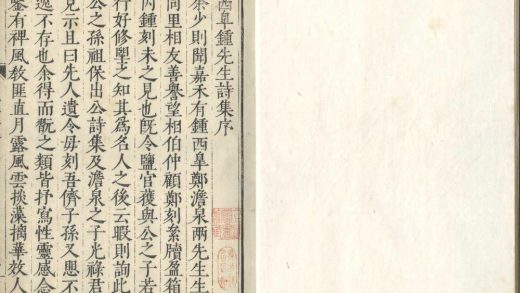 西皐鍾先生詩集序
余少則聞嘉禾有鍾西皐鄭澹泉兩先生生
同里相友善譽望相伯仲顧鄭刻絫牘盈箱
而鍾刻未之見也旣令鹽官獲與公之子若
行好修知其爲名人之後云暇則詢此
公之孫祖保出公詩集及澹泉之子光祿君
見示且曰先人遺令毋刻吾儕子孫又患不
逸不存也余得而翫之類皆抒寫性靈感念
鑒有裨風敎匪直月露風雲掞藻摛華效人